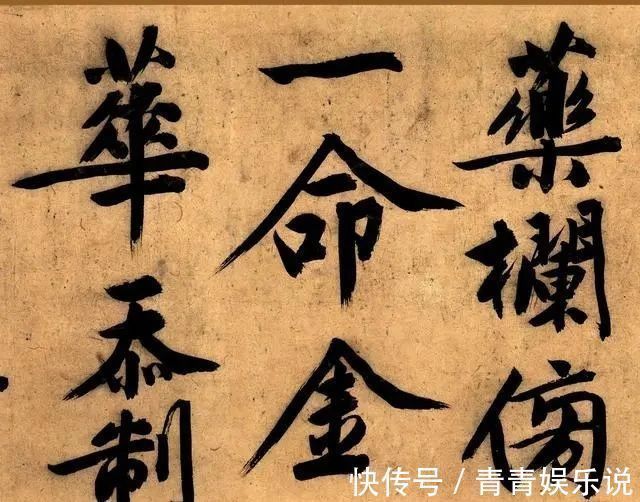 藥欄傍
一命金
華忝制
快传号 / 青青娱乐说